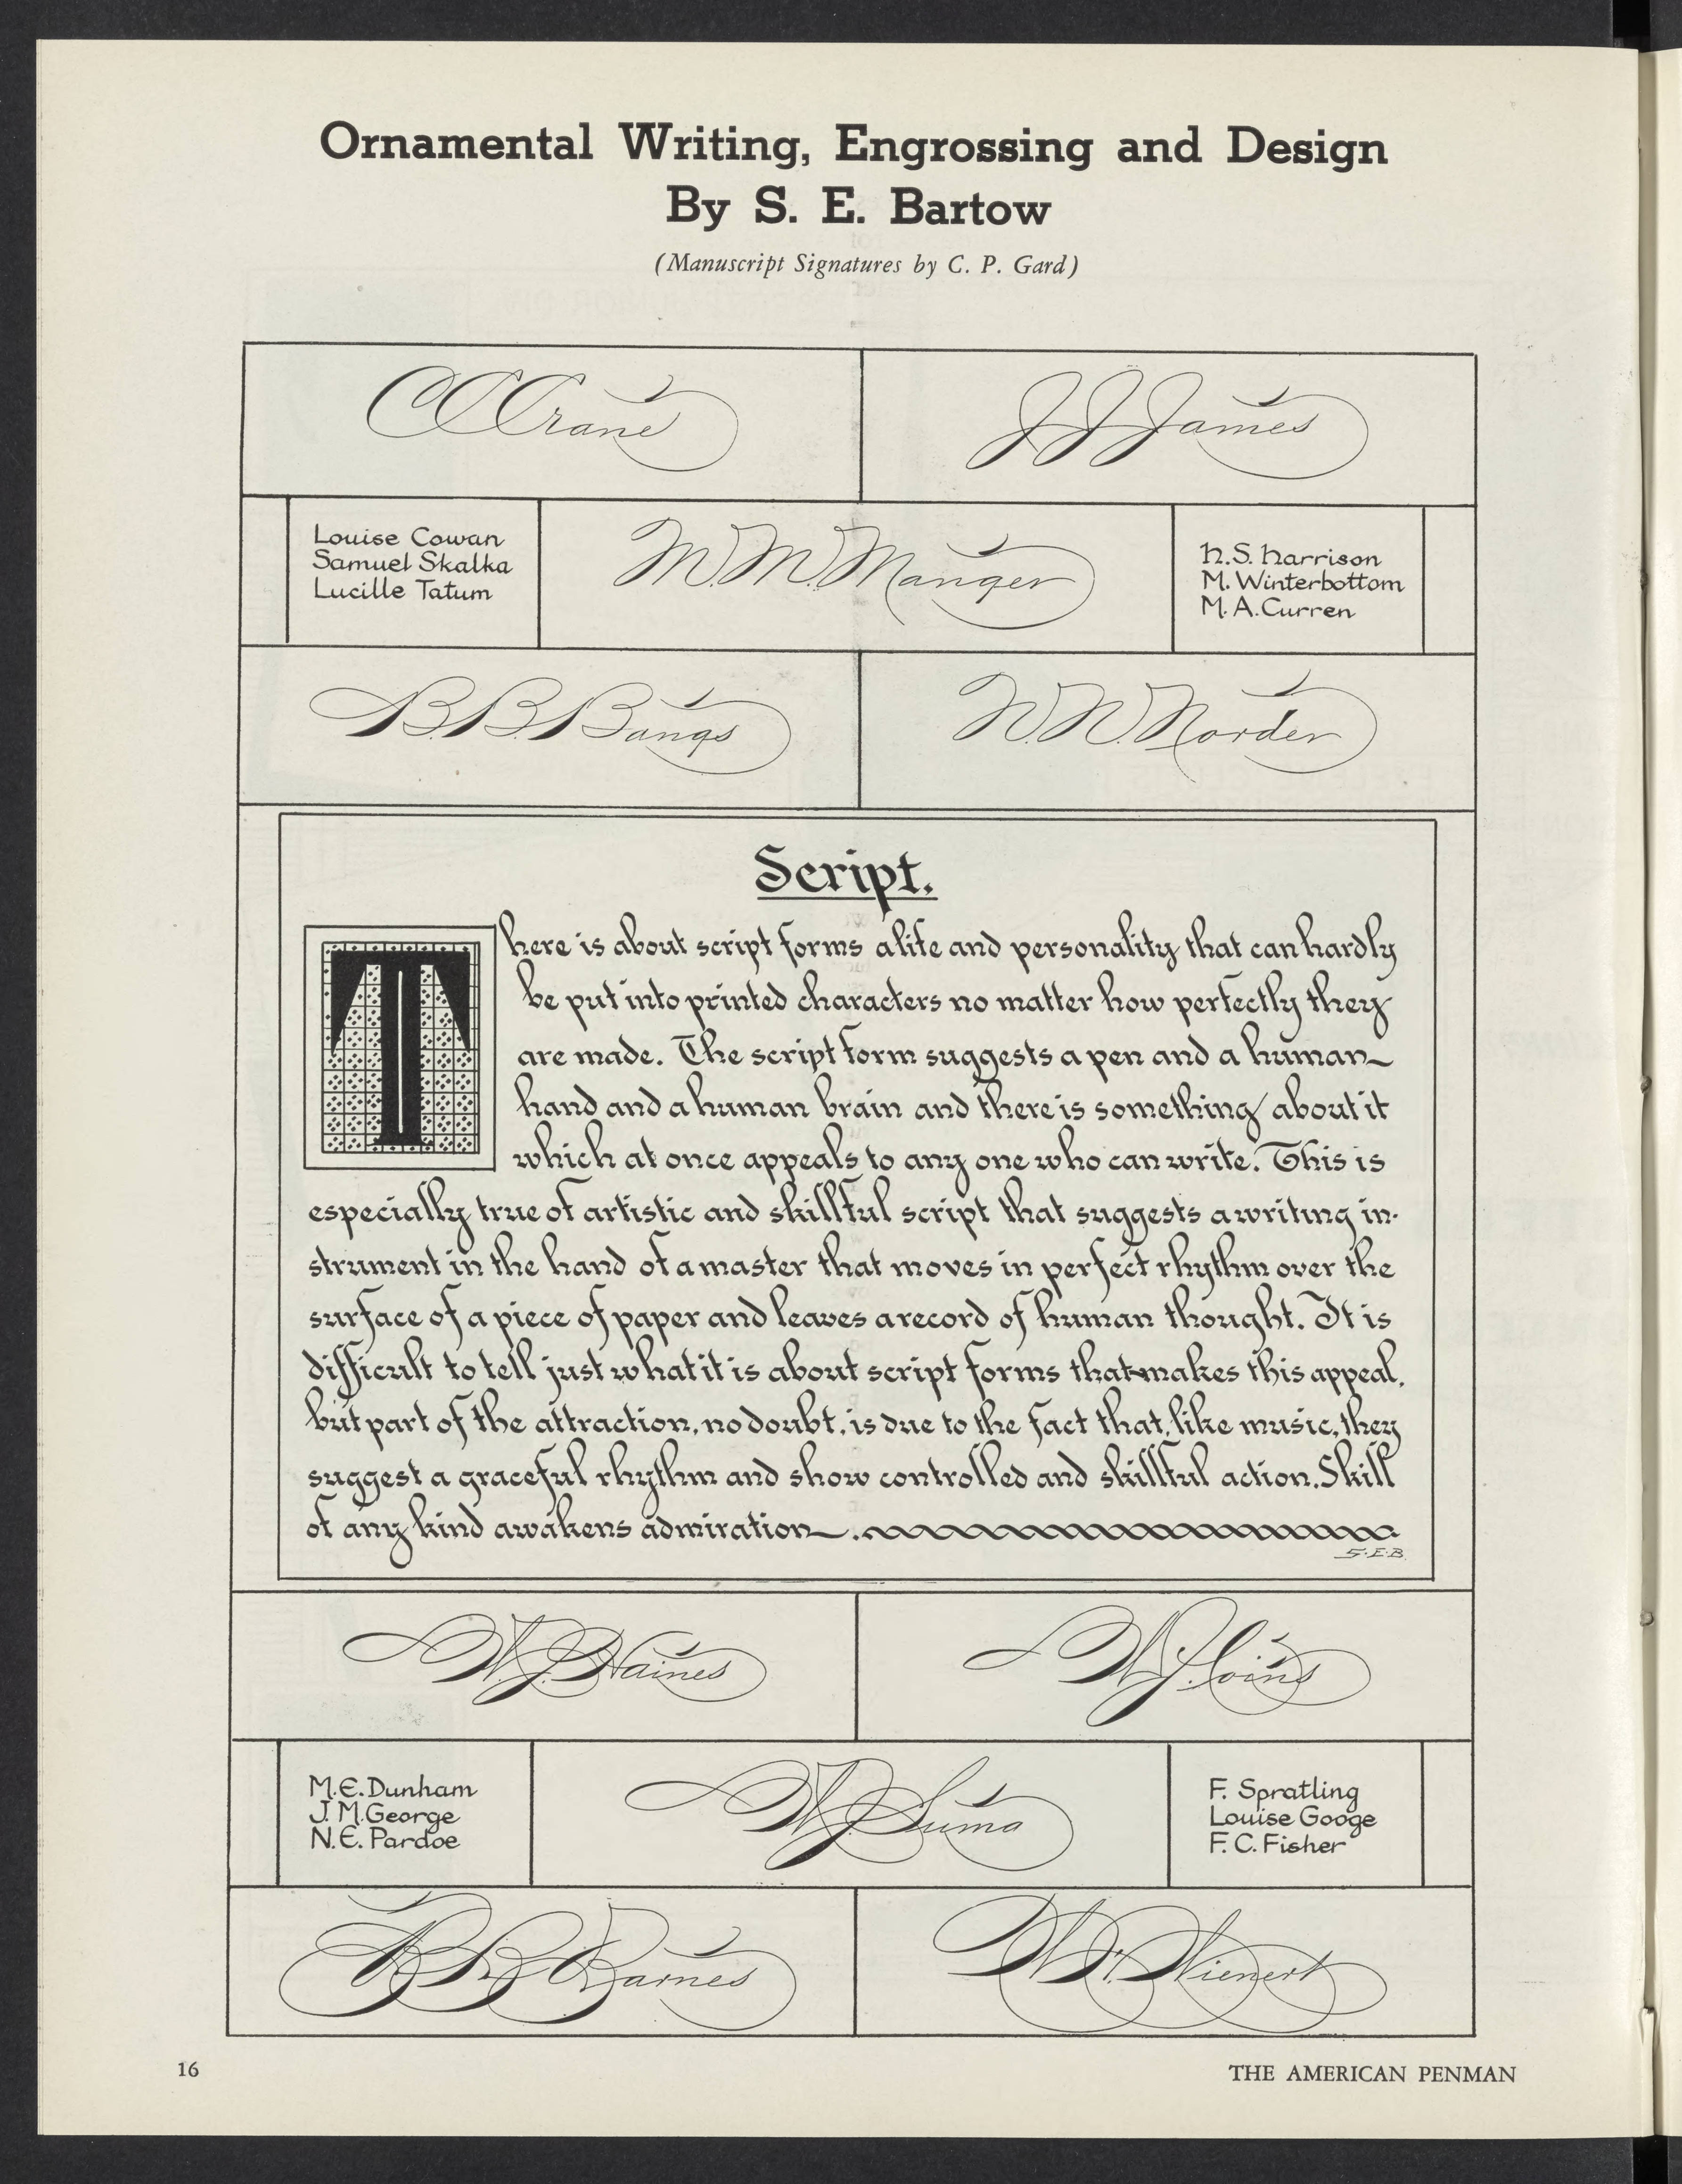 Ornamental Writing, Engrossing and Design
By S. E. Bartow
(Manuscript Signatures by C. P. Gard)
C C Crane
J J James
Louise Cowan
Samuel Skalka
Lucille Tatum
M. M. Manger
H. S. Harrison
M. Winterbottom
M. A. Curren
B. B. Bangs
N. N. Norder
Script.
There is about script forms a life and personality that can hardly
be put into printed characters no matter how perfectly they
are made. The script form suggests a pen and a human
hand and a human brain and there is something about it
which at once appeals to any one who can write. This is
especially true of artistic and skillful script that suggests a writing in-
strument in the hand of a master that moves in perfect rhythm over the
surface of a piece of paper and leaves a record of human thought. It is
difficult to tell just what it is about script forms that makes this appeal,
but part of the attraction, no doubt, is due to the fact that, like music, they
suggest a graceful rhythm and show controlled and skillful action. Skill
of any kind awakens admiration.
S.E.B.
W. J. Haines
W. J.
M. E. Dunham
J. M. George
N. E. Pardoe
W. J. Suma
F. Spratling
Louise Googe
F. C. Fisher
B B Barnes
Wienert
16
THE AMERICAN PENMAN